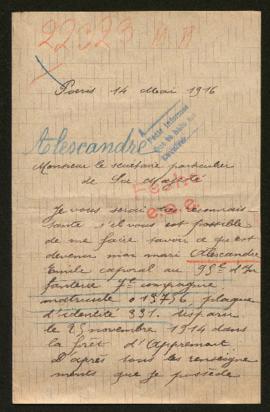 22323
Paris 14 Mai 1916
Alescandre
Monsieur le secrétaire particulier
de Sa Majesté
Je vous serai très reconnais-
sante s'il vous est possible
de me faire savoir ce qu'est
devenu mon mari Alescandre
Emile caporal au 95e d'In
fanterie 7e compagnie
matricule 013756, plaque
d'identité 331. disparu
le 25 novembre 1914 dans
la forêt d'Appremont
D'après tous les renseigne
ments que je possède